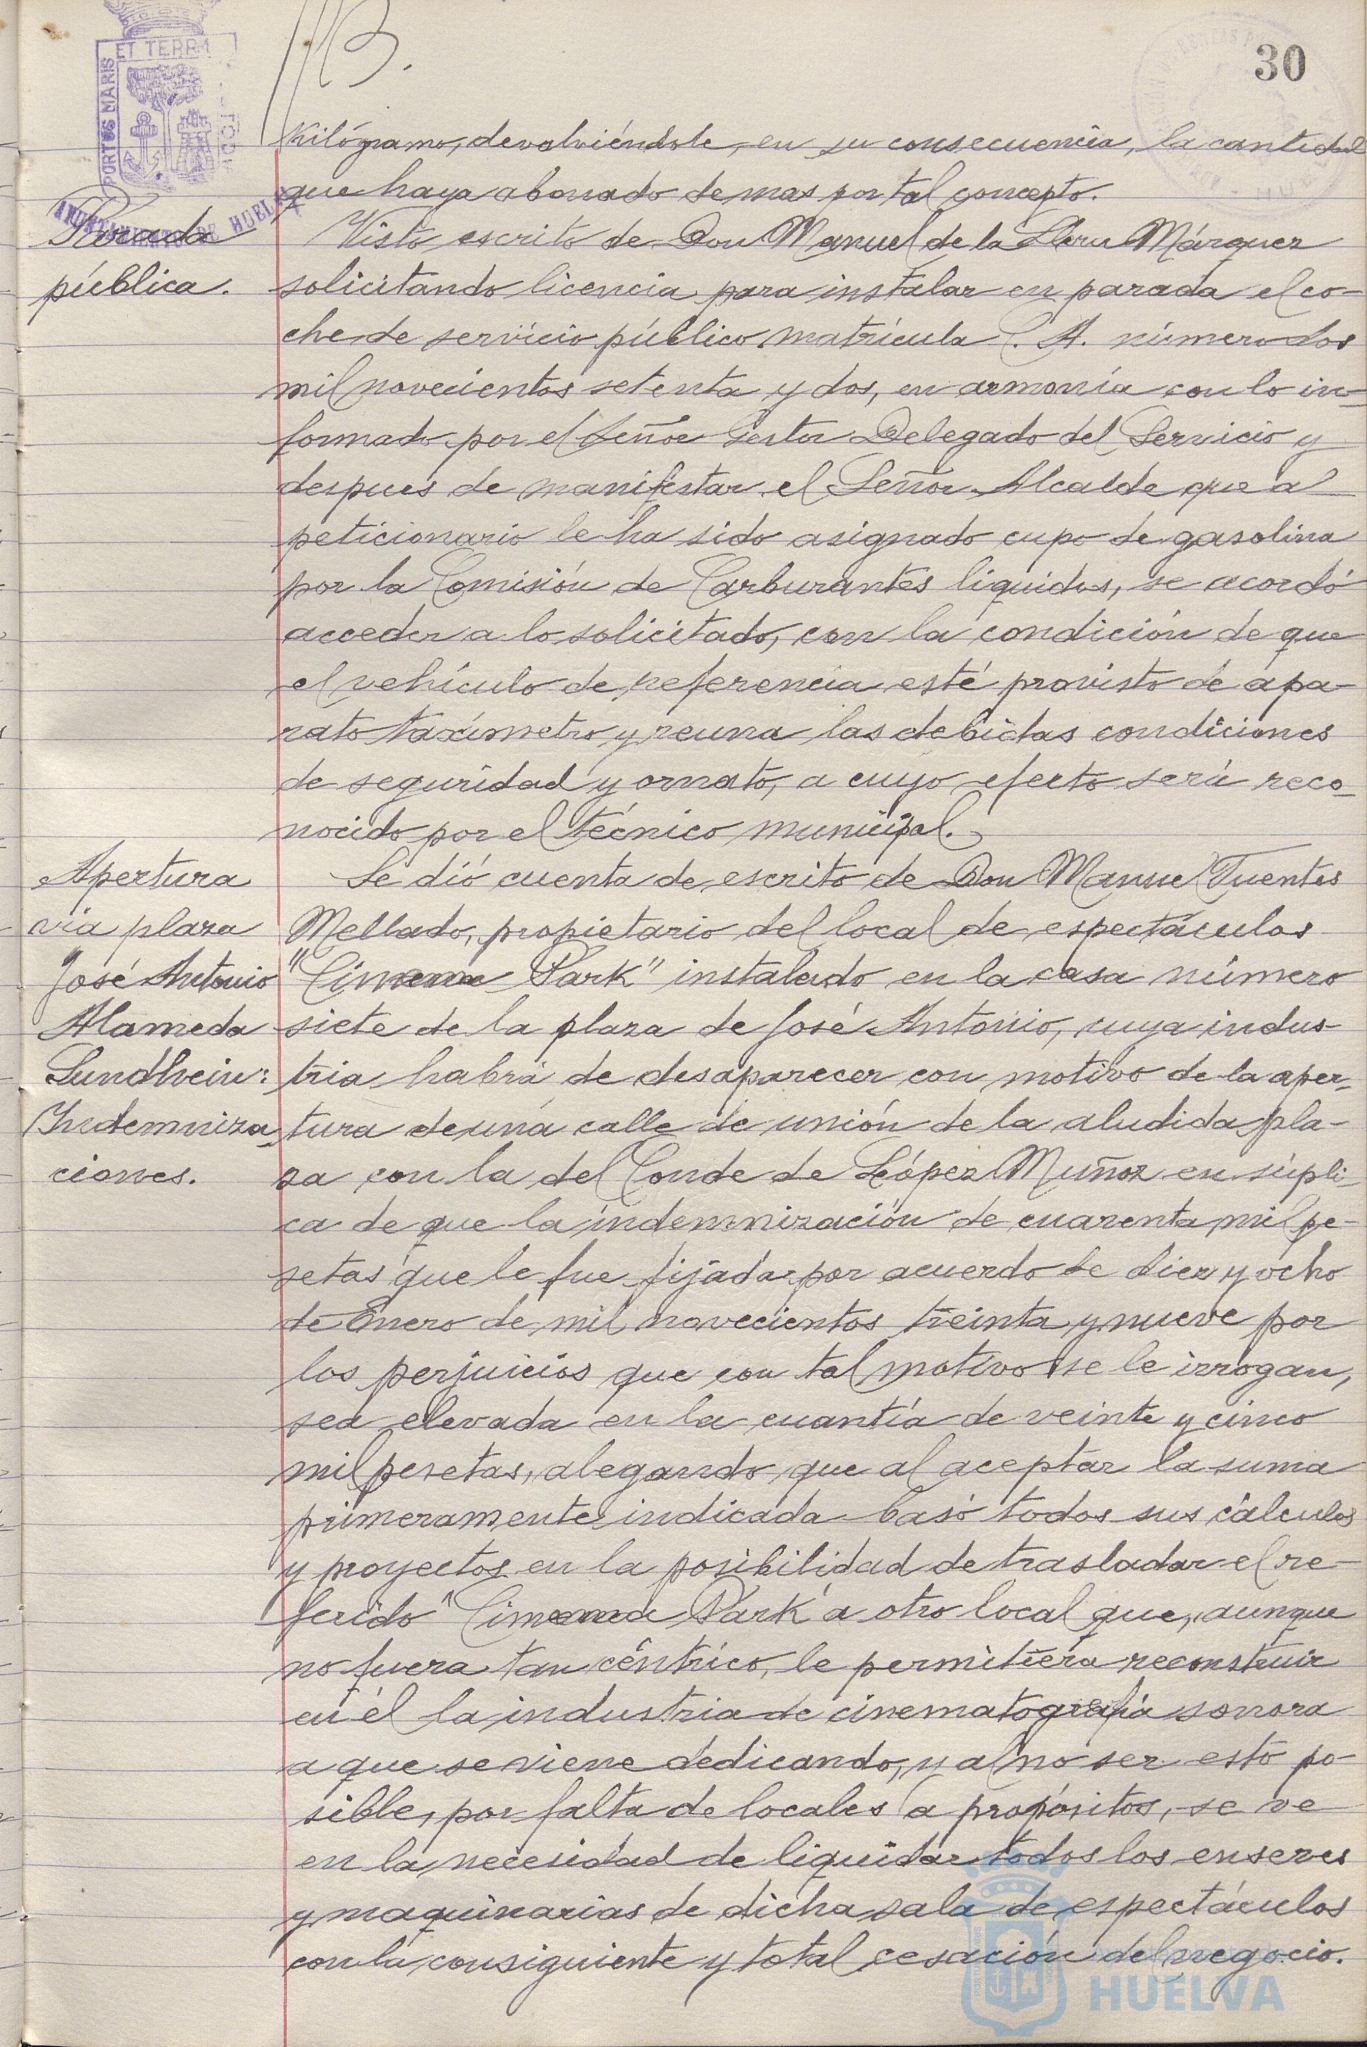 30
PORTUS MARIS
ET TERRÆ
AYUNTAMIENTO DE HUELVA
Kilógramo, devolviéndole, en su consecuencia, la cantidad
que haya abonado de mas por tal concepto.
Parada
pública.
Visto escrito de Don Manuel de la Márquez
solicitando licencia para instalar en parada el co-
che de servicio público matrícula C. A. número dos
mil novecientos setenta y dos, en armonía con lo in-
formado por el Señor Gestor Delegado del Servicio y
después de manifestar el Señor Alcalde que al
peticionario le ha sido asignado cupo de gasolina
por la Comisión de Carburantes líquidos, se acordó
acceder a lo solicitado, con la condición de que
el vehículo de referencia esté provisto de apa-
rato taxímetro y reuna las debidas condiciones
de seguridad y ornato, a cuyo efecto será reco-
nocido por el técnico municipal.
Apertura
via plaza
José Antonio
Alameda
Sundheim:
Indemniza-
ciones.
Se dió cuenta de escrito de Don Manuel Fuentes
Mellado, propietario del local de espectáculos
"Cinema Park" instalado en la casa número
siete de la plaza de José Antonio, cuya indus-
tria habrá de desaparecer con motivo de la aper-
tura de una calle de unión de la aludida pla-
za con la del Conde de López Muñoz en súpli-
ca de que la indemnización de cuarenta mil pe-
setas que le fue fijada por acuerdo de diez y ocho
de Enero de mil novecientos treinta y nueve por
los perjuicios que con tal motivo se le irrogan,
sea elevada en la cuantía de veinte y cinco
mil pesetas, alegando que al aceptar la suma
primeramente indicada basó todos sus cálculos
y proyectos en la posibilidad de trasladar el re-
ferido "Cinema Park" a otro local que, aunque
no fuera tan céntrico, le permitiera reconstruir
en él la industria de cinematografía sonora
a que se viene dedicando, y al no ser esto po-
sible, por falta de locales a propósitos, se ve
en la necesidad de liquidar todos los enseres
y maquinarias de dicha sala de espectáculos
con la consiguiente y total cesación del negocio.
HUELVA